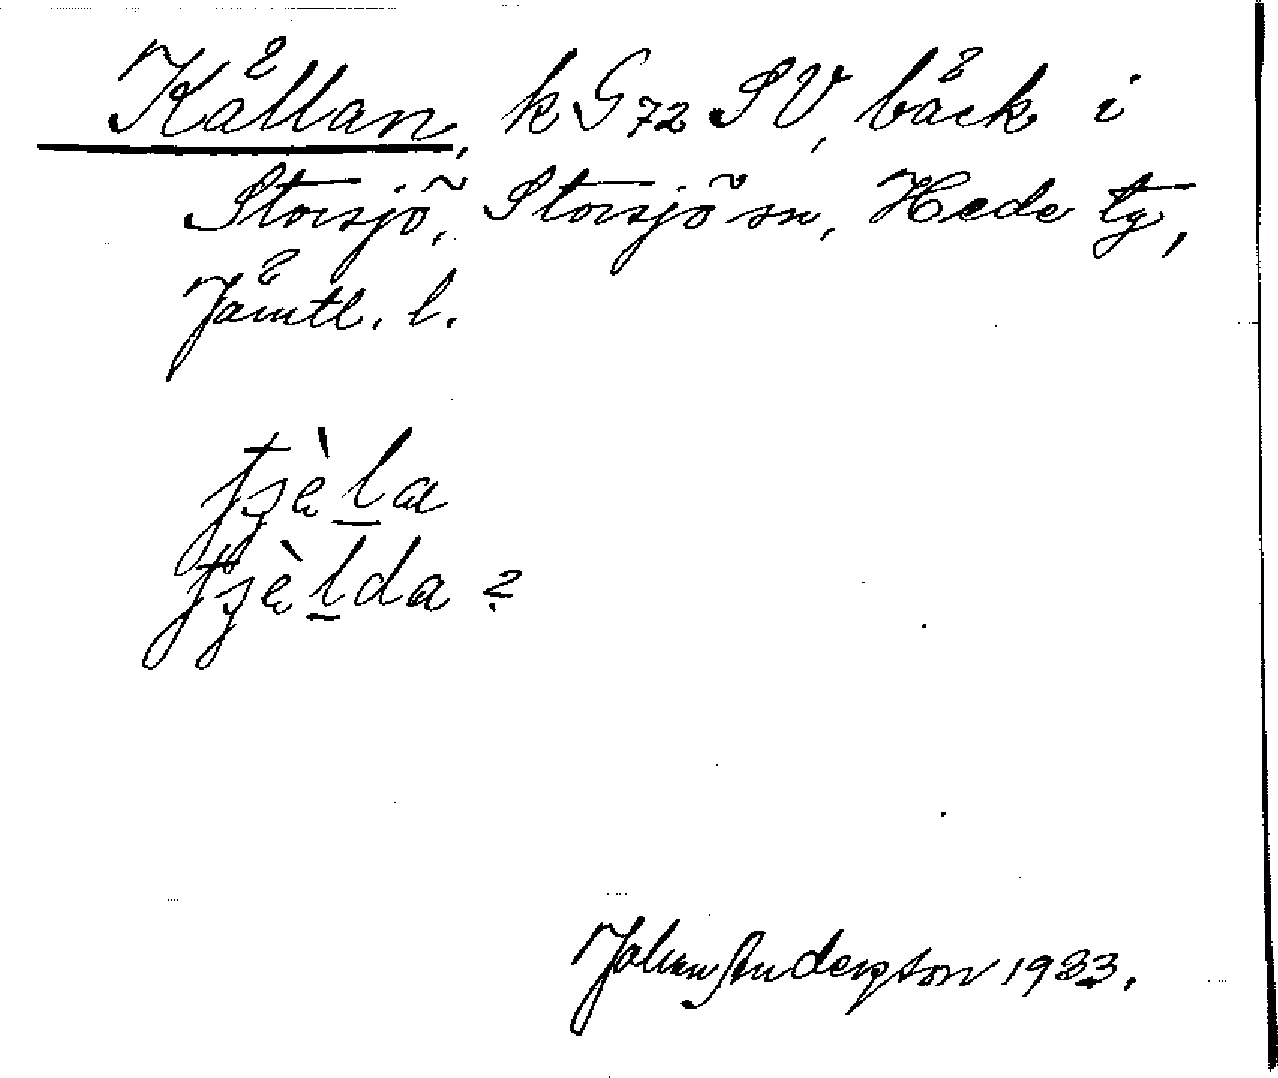 Källan, k G 72 SV, bäck i
Storsjö, Storsjö sn, Hede tg,
Jämtl. l.
tjèla
tjèlda ?
Johan Anderson 1933.